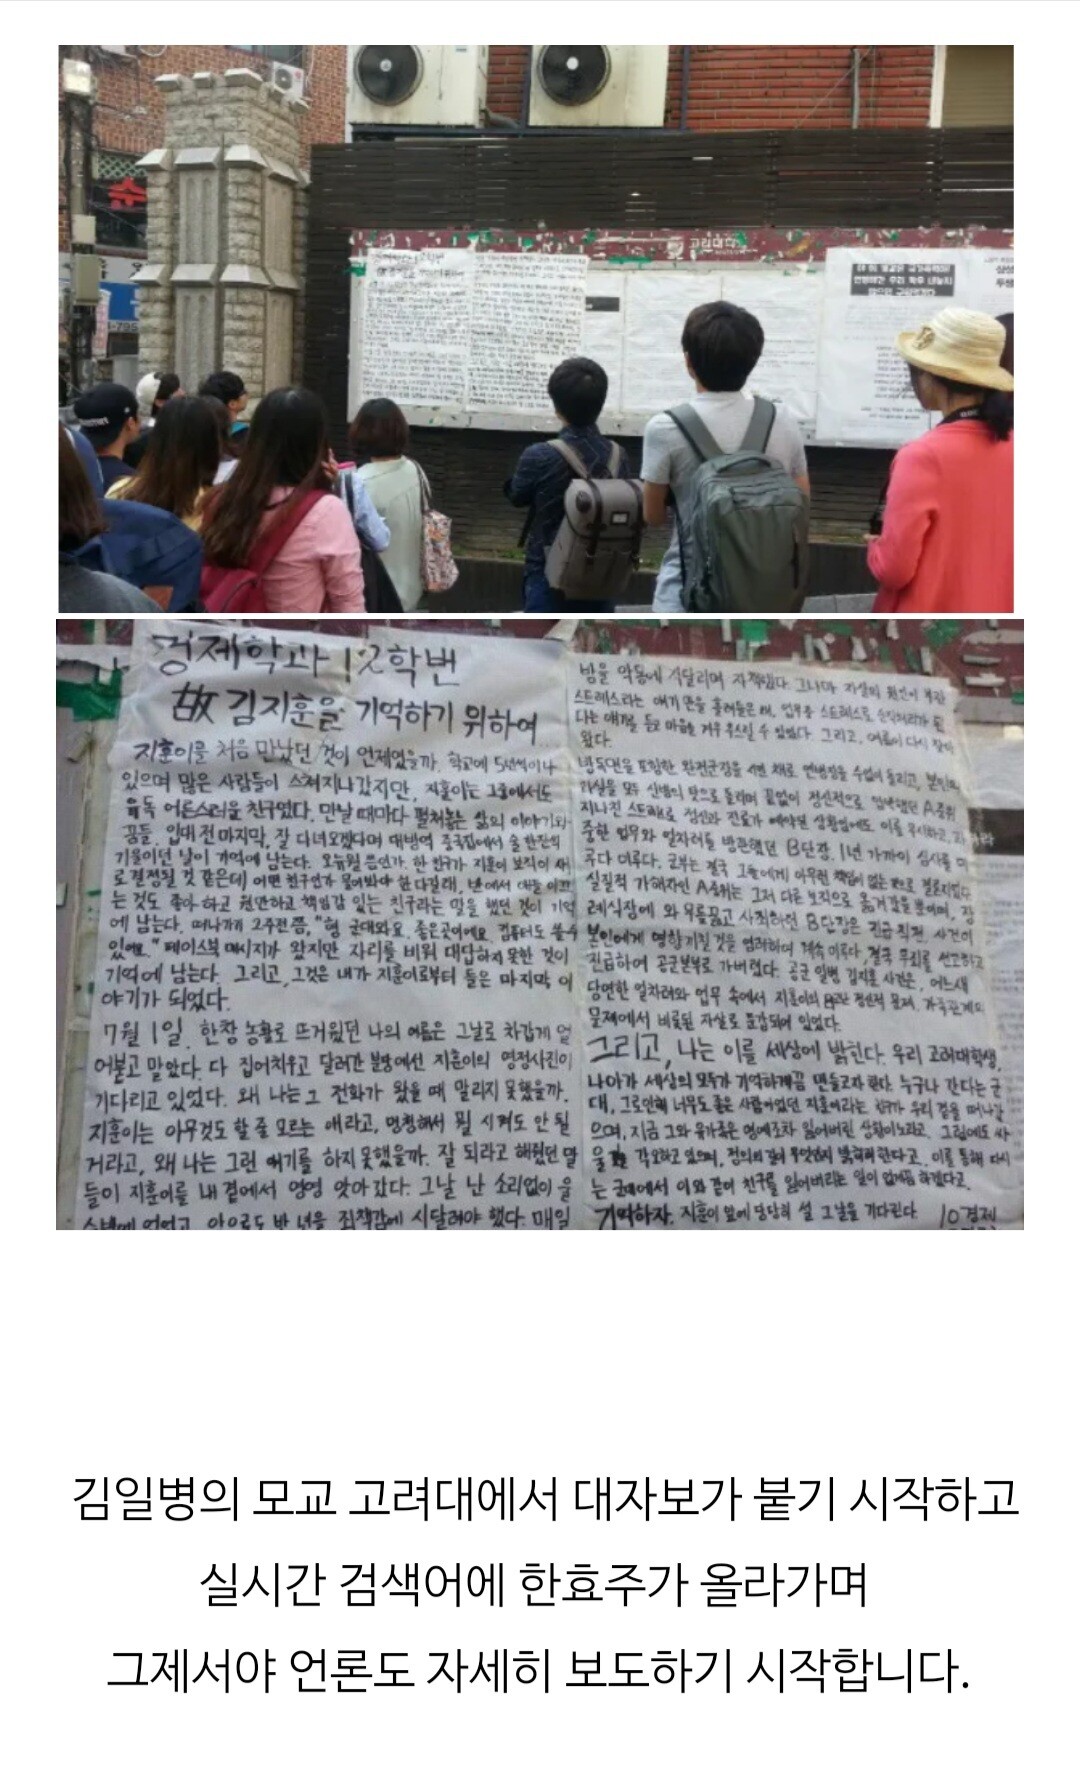 고려대
경제학과 12학번
故 김지훈을 기억하기 위하여
지훈이를 처음 만났던 것이 언제였을까. 학교에 5년씩이나
있으며 많은 사람들이 스쳐지나갔지만, 지훈이는 그중에서도
유독 어른스러운 친구였다. 만날 때마다 펼쳐놓는 삶의 이야기와
꿈들, 입대 전 마지막, 잘 다녀오겠다며 대방역 중국집에서 술 한잔의
기울이던 날이 기억에 남는다. 한 친구가 지훈이 보직이 새
로 결정될 것 같은데 어떤 친구인가 물어봐야 한다길래,
는 것도 좋아 하고 원만하고 책임감 있는 친구라는 말을 했던 것이 기억
에 남는다. 떠나가기 2주전쯤, "형 군대와요. 좋은곳이에요. 컴퓨터도 쓸수
있어요." 페이스북 메시지가 왔지만 자리를 비워 대답하지 못한 것이
기억에 남는다. 그리고, 그것은 내가 지훈이로부터 들은 마지막 이
야기가 되었다.
7월 1일. 한창 농활로 뜨거웠던 나의 여름은 그날로 차갑게 얼
어붙고 말았다. 다 집어치우고 달려간 분당에선 지훈이의 영정사진이
기다리고 있었다. 왜 나는 그 전화가 왔을 때 말리지 못했을까.
지훈이는 아무것도 할 줄 모르는 애라고, 멍청해서 뭘 시켜도 안 될
거라고, 왜 나는 그런 얘기를 하지 못했을까. 잘 되라고 해줬던 말
들이 지훈이를 내 곁에서 영영 앗아갔다. 그날 난 소리없이 울
앞으로도 반 년을 죄책감에 시달려야 했다. 매일
밤을 악몽에 시달리며 자책했다. 그나마 자살의 원인이 부관
스트레스라는 얘기만을 흘려들은 때, 업무중 스트레스로 순직처리가 된
다는 얘기를 듣고 마음을 겨우 추스릴 수 있었다. 그리고, 여름이 다시 찾아
왔다.
방독면을 포함한 완전군장을 시킨 채로 연병장을 수없이 돌리고, 본인의
과실을 모두 신병의 탓으로 돌리며 끝없이 정신적으로 압박했던 A중위
지나친 스트레스로 정신과 진료가 예약된 상황임에도 이를 무시하고, 과
중한 업무와 얼차려를 방관했던 B단장. 1년 가까이 심사를 미
루다 미루다. 군부는 결국 그들에게 아무런 책임이 없는 것으로 결론지었다.
실질적 가해자인 A중위는 그저 다른 보직으로 옮겨갔을 뿐이며, 장
례식장에 와 무릎꿇고 사죄하던 B단장은 진급 직전, 사건이
본인에게 영향끼칠 것을 염려하여 계속 미루다, 결국 무죄를 선고하고
진급하여 공군본부로 가버렸다. 공군 일병 김지훈 사건은, 어느새
당연한 얼차려와 업무 속에서 지훈이의 정신적 문제, 가족관계의
문제에서 비롯된 자살로 둔갑되어 있었다.
그리고, 나는 이를 세상에 밝힌다. 우리 고려대학생,
나아가 세상의 모두가 기억하게끔 만들고자 한다. 누구나 간다는 군
대, 그로인해 너무도 좋은 사람이었던 지훈이라는 친구가 우리 곁을 떠나갔
으며, 지금 그와 유가족은 명예조차 잃어버린 상황이노라고. 그럼에도 싸
움을 각오하고 있으며, 정의의 길이 무엇인지 밝히려 한다고. 이를 통해 다시
는 군대에서 이와 같이 친구를 잃어버리는 일이 없게끔 하겠다고.
기억하자. 지훈이 앞에 당당히 설 그날을 기다린다. 10경제
김일병의 모교 고려대에서 대자보가 붙기 시작하고
실시간 검색어에 한효주가 올라가며
그제서야 언론도 자세히 보도하기 시작합니다.